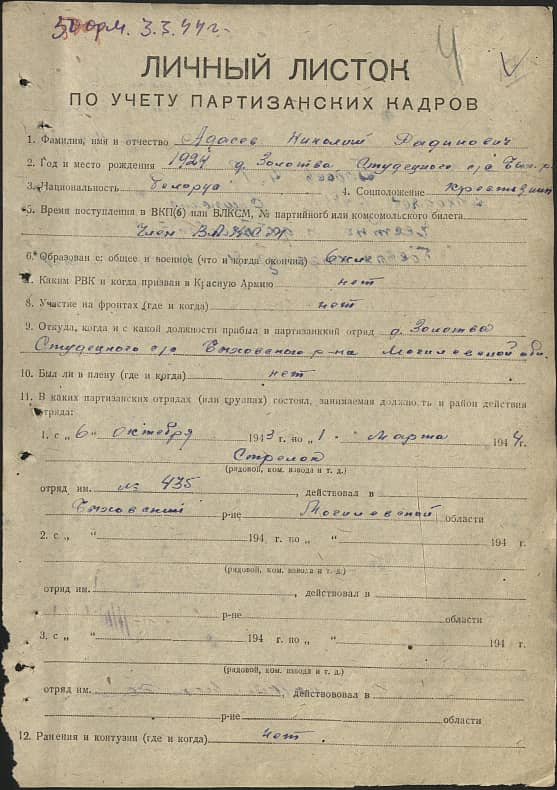 орм. 3.3.44 г.
4 V
ЛИЧНЫЙ ЛИСТОК
ПО УЧЕТУ ПАРТИЗАНСКИХ КАДРОВ
1. Фамилия, имя и отчество Адасев Николай Радинович
2. Год и место рождения 1924 д. Золотва Студецкого с/с Бых. р.
3. Национальность белорус 4. Соцположение крестьянин
5. Время поступления в ВКП(б) или ВЛКСМ, № партийного или комсомольского билета
Член ВЛКСМ
6. Образован е: общее и военное (что и когда окончил) 6 кл.
7. Каким РВК и когда призван в Красную Армию нет
8. Участие на фронтах (где и когда) нет
9. Откуда, когда и с какой должности прибыл в партизанкий отряд д. Золотва
Студецкого с/с Быховского р-на Могилевской обл.
10. Был ли в плену (где и когда) нет
11. В каких партизанских отрядах (или группах) состоял, занимаемая должность и район действия
отряда:
1. с „ 6 " октября 1943 г. по „ 1 " Марта 1944 г.
Стрелок
(рядовой, ком. взвода и т. д.)
отряд им. № 435, действовал в
Быховский р-не Могилевской области
2. с „ " 194 г. по „ " 194 г.
(рядовой, ком. взвода и т. д.)
отряд им. , действовал в
р-не области
3. с „ " 194 г. по „ " 194 г.
(рядовой, ком. взвода и т. д.)
отряд им. , действововал в
р-не области
12. Ранения и контузии (где и когда) нет.